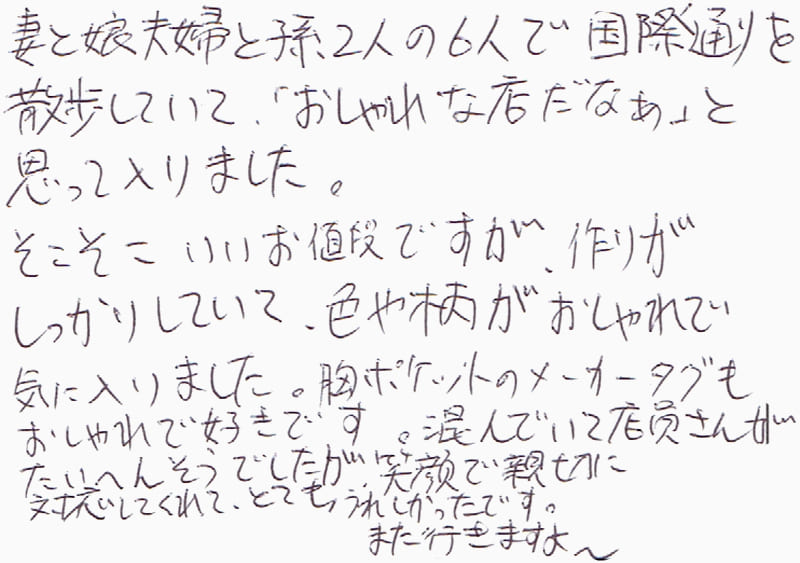 妻と娘夫婦と孫2人の6人で国際通りを
散歩していて、「おしゃれな店だなぁ」と
思って入りました。
そこそこいいお値段ですが、作りが
しっかりしていて、色や柄がおしゃれで
気に入りました。胸ポケットのメーカータグも
おしゃれで好きです。混んでいて店員さんが
たいへんそうでしたが、笑顔で親切に
対応してくれて、とてもうれしかったです。
また行きますよ〜